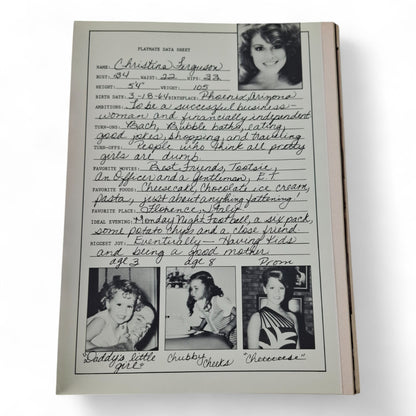 PLAYMATE DATA SHEET
NAME: Christina Ferguson
BUST: 34 WAIST: 22 HIPS: 33
HEIGHT: 5'4" WEIGHT: 105
BIRTH DATE: 3-18-64 BIRTHPLACE: Phoenix, Arizona
AMBITIONS: To be a successful business-
woman and financially independent
TURN-ONS: Bach, Bubble baths, eating,
good jokes, shopping, and traveling
TURN-OFFS: People who think all pretty
girls are dumb.
FAVORITE MOVIES: Best Friends, Tootsie,
An Officer and a Gentleman, E.T.
FAVORITE FOODS: Cheesecake, Chocolate ice cream,
pasta, just about anything fattening!
FAVORITE PLACE: Florence, Italy
IDEAL EVENING: Monday Night Football, a six pack,
some potato chips and a close friend.
BIGGEST JOY: Eventually— Having kids
and being a good mother.
age 3 age 8 Prom
"Daddy's little girl" Chubby Cheeks "Cheeeeese"